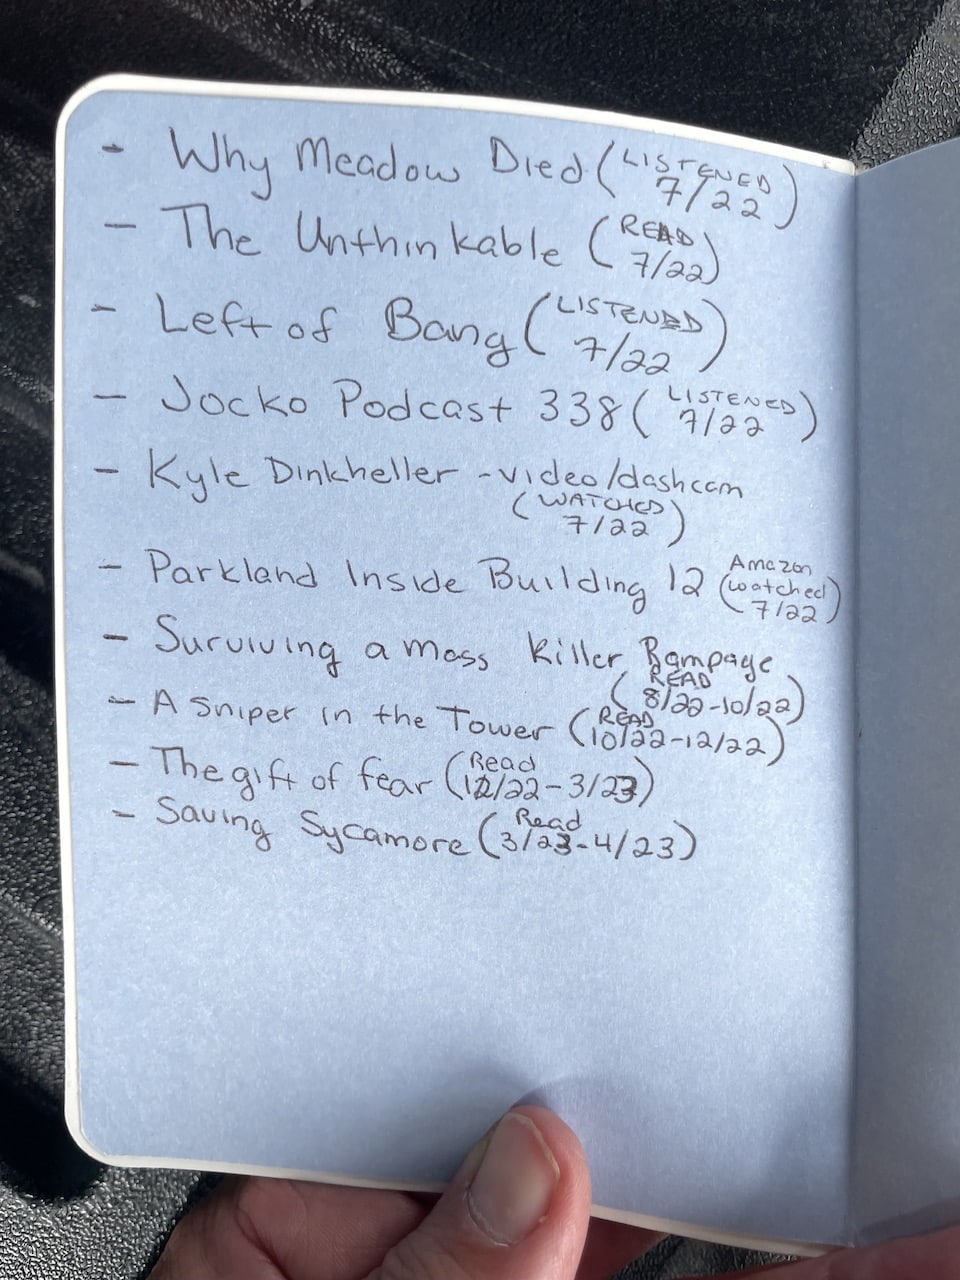 - Why Meadow Died (LISTENED
7/22)
- The Unthinkable (READ
7/22)
- Left of Bang (LISTENED
7/22)
- Jocko Podcast 338 (LISTENED
7/22)
- Kyle Dinkheller - video/dashcam
(WATCHED
7/22)
- Parkland Inside Building 12 Amazon
(watched
7/22)
- Surviving a mass killer Rampage
(READ
8/22-10/22)
- A sniper in the Tower (READ
10/22-12/22)
- The gift of fear (Read
12/22-3/23)
- Saving Sycamore (Read
3/23-4/23)